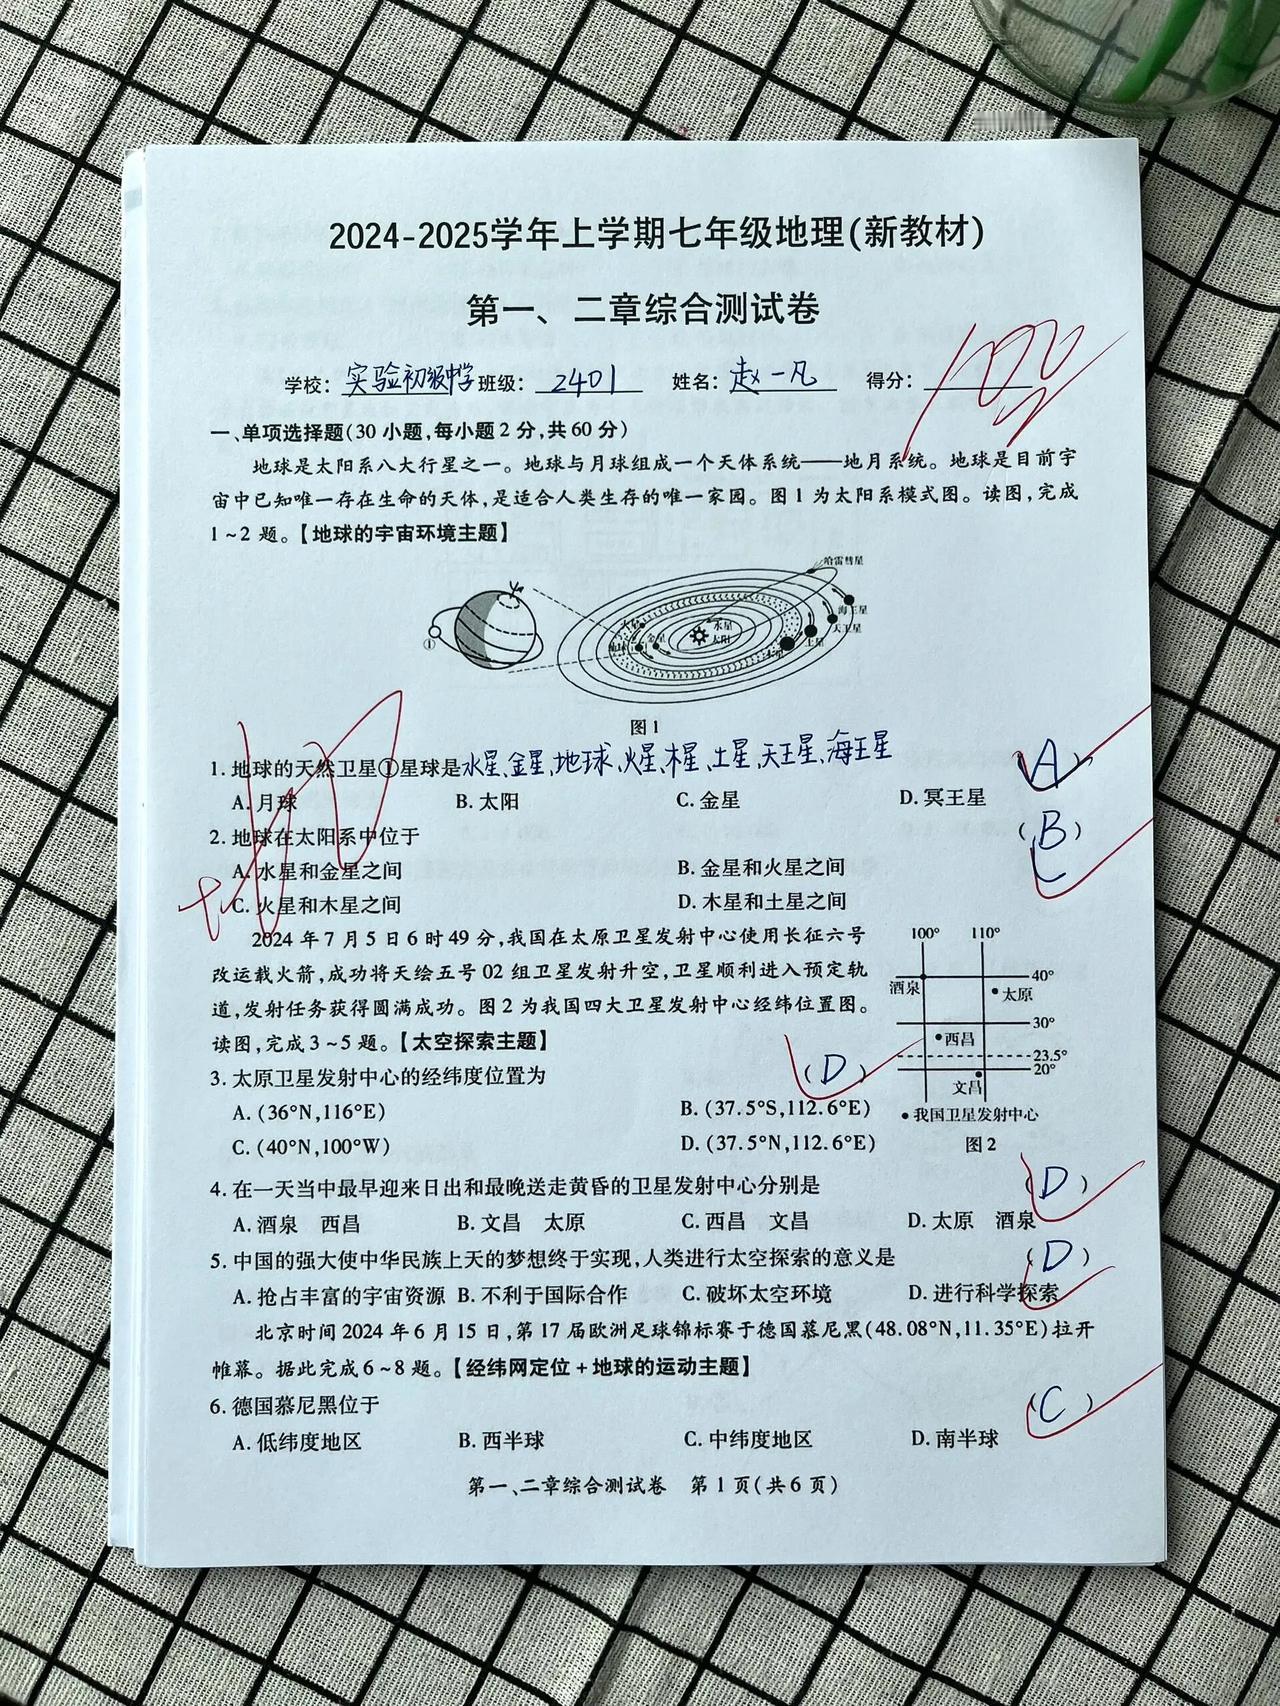 2024-2025学年上学期七年级地理(新教材)
第一、二章综合测试卷
学校: 实验初级中学 班级: 2401 姓名: 赵一凡 得分: 100
一、单项选择题(30 小题,每小题 2 分,共 60 分)
地球是太阳系八大行星之一。地球与月球组成一个天体系统——地月系统。地球是目前宇
宙中已知唯一存在生命的天体,是适合人类生存的唯一家园。图 1 为太阳系模式图。读图,完成
1~2 题。【地球的宇宙环境主题】
哈雷彗星
海王星
天王星
土星
木星
水星
太阳
金星
火星
地球
①
图 1
1. 地球的天然卫星①星球是水星、金星、地球、火星、木星、土星、天王星、海王星 (A)
A. 月球 B. 太阳 C. 金星 D. 冥王星
2. 地球在太阳系中位于 (B)
A. 水星和金星之间 B. 金星和火星之间
C. 火星和木星之间 D. 木星和土星之间
+60
2024 年 7 月 5 日 6 时 49 分,我国在太原卫星发射中心使用长征六号
改运载火箭,成功将天绘五号 02 组卫星发射升空,卫星顺利进入预定轨
道,发射任务获得圆满成功。图 2 为我国四大卫星发射中心经纬位置图。
读图,完成 3~5 题。【太空探索主题】
100° 110°
40°
酒泉
太原
30°
西昌
23.5°
20°
文昌
• 我国卫星发射中心
图 2
3. 太原卫星发射中心的经纬度位置为 (D)
A. (36°N,116°E) B. (37.5°S,112.6°E)
C. (40°N,100°W) D. (37.5°N,112.6°E)
4. 在一天当中最早迎来日出和最晚送走黄昏的卫星发射中心分别是 (D)
A. 酒泉 西昌 B. 文昌 太原 C. 西昌 文昌 D. 太原 酒泉
5. 中国的强大使中华民族上天的梦想终于实现,人类进行太空探索的意义是 (D)
A. 抢占丰富的宇宙资源 B. 不利于国际合作 C. 破坏太空环境 D. 进行科学探索
北京时间 2024 年 6 月 15 日,第 17 届欧洲足球锦标赛于德国慕尼黑(48.08°N,11.35°E)拉开
帷幕。据此完成 6~8 题。【经纬网定位+地球的运动主题】
6. 德国慕尼黑位于 (C)
A. 低纬度地区 B. 西半球 C. 中纬度地区 D. 南半球
第一、二章综合测试卷 第 1 页(共 6 页)